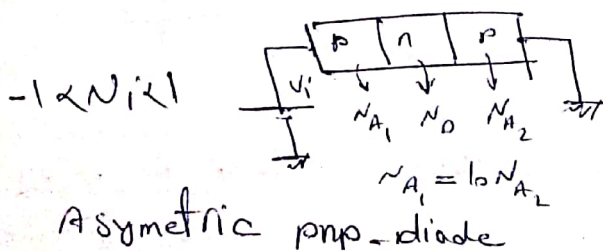 p n p
-1 < Vi < 1
Vi
NA1 ND NA2
NA1 = 10 NA2
Asymetric pnp-diode